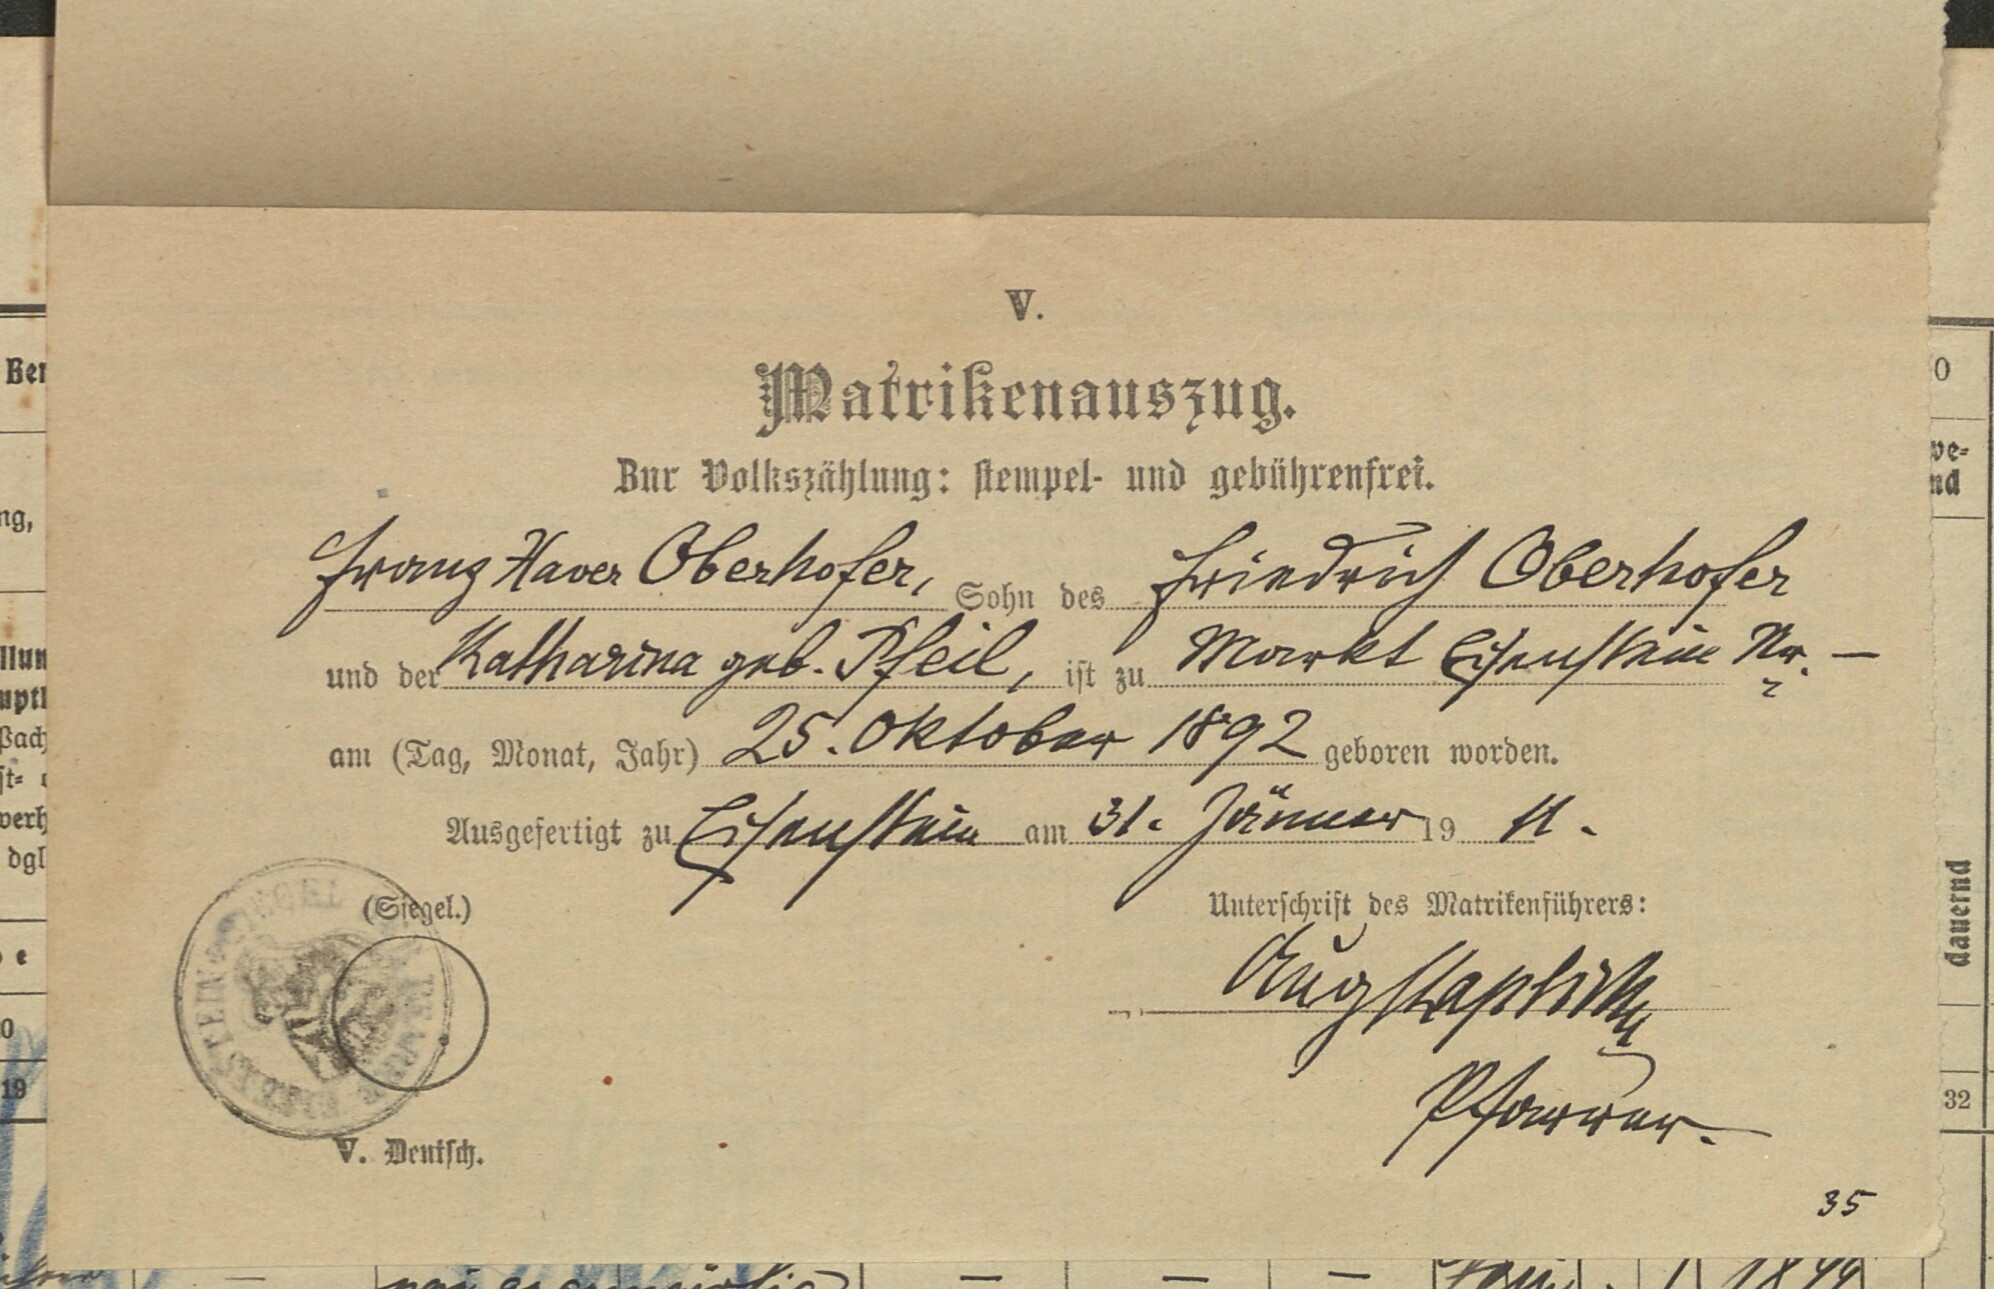 V.
Matrikenauszug.
Zur Volkszählung: stempel- und gebührenfrei.
Franz Xaver Oberhofer, Sohn des Friedrich Oberhofer
und der Katharina geb. Pfeil, ist zu Markt Eisenstein Nr. —
am (Tag, Monat, Jahr) 25. Oktober 1892 geboren worden.
Ausgefertigt zu Eisenstein am 31. Jänner 19 11.
(Siegel.)
Unterschrift des Matrikenführers:
Pfarrer.
V. Deutsch.
35
Ber
ng,
0
19
we-
nd
dauernd
32